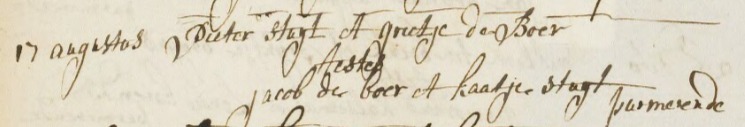 17 augustus Pieter stuyt et grietje de Boer
testes
jacob de boer et kaatje stuyt purmerende